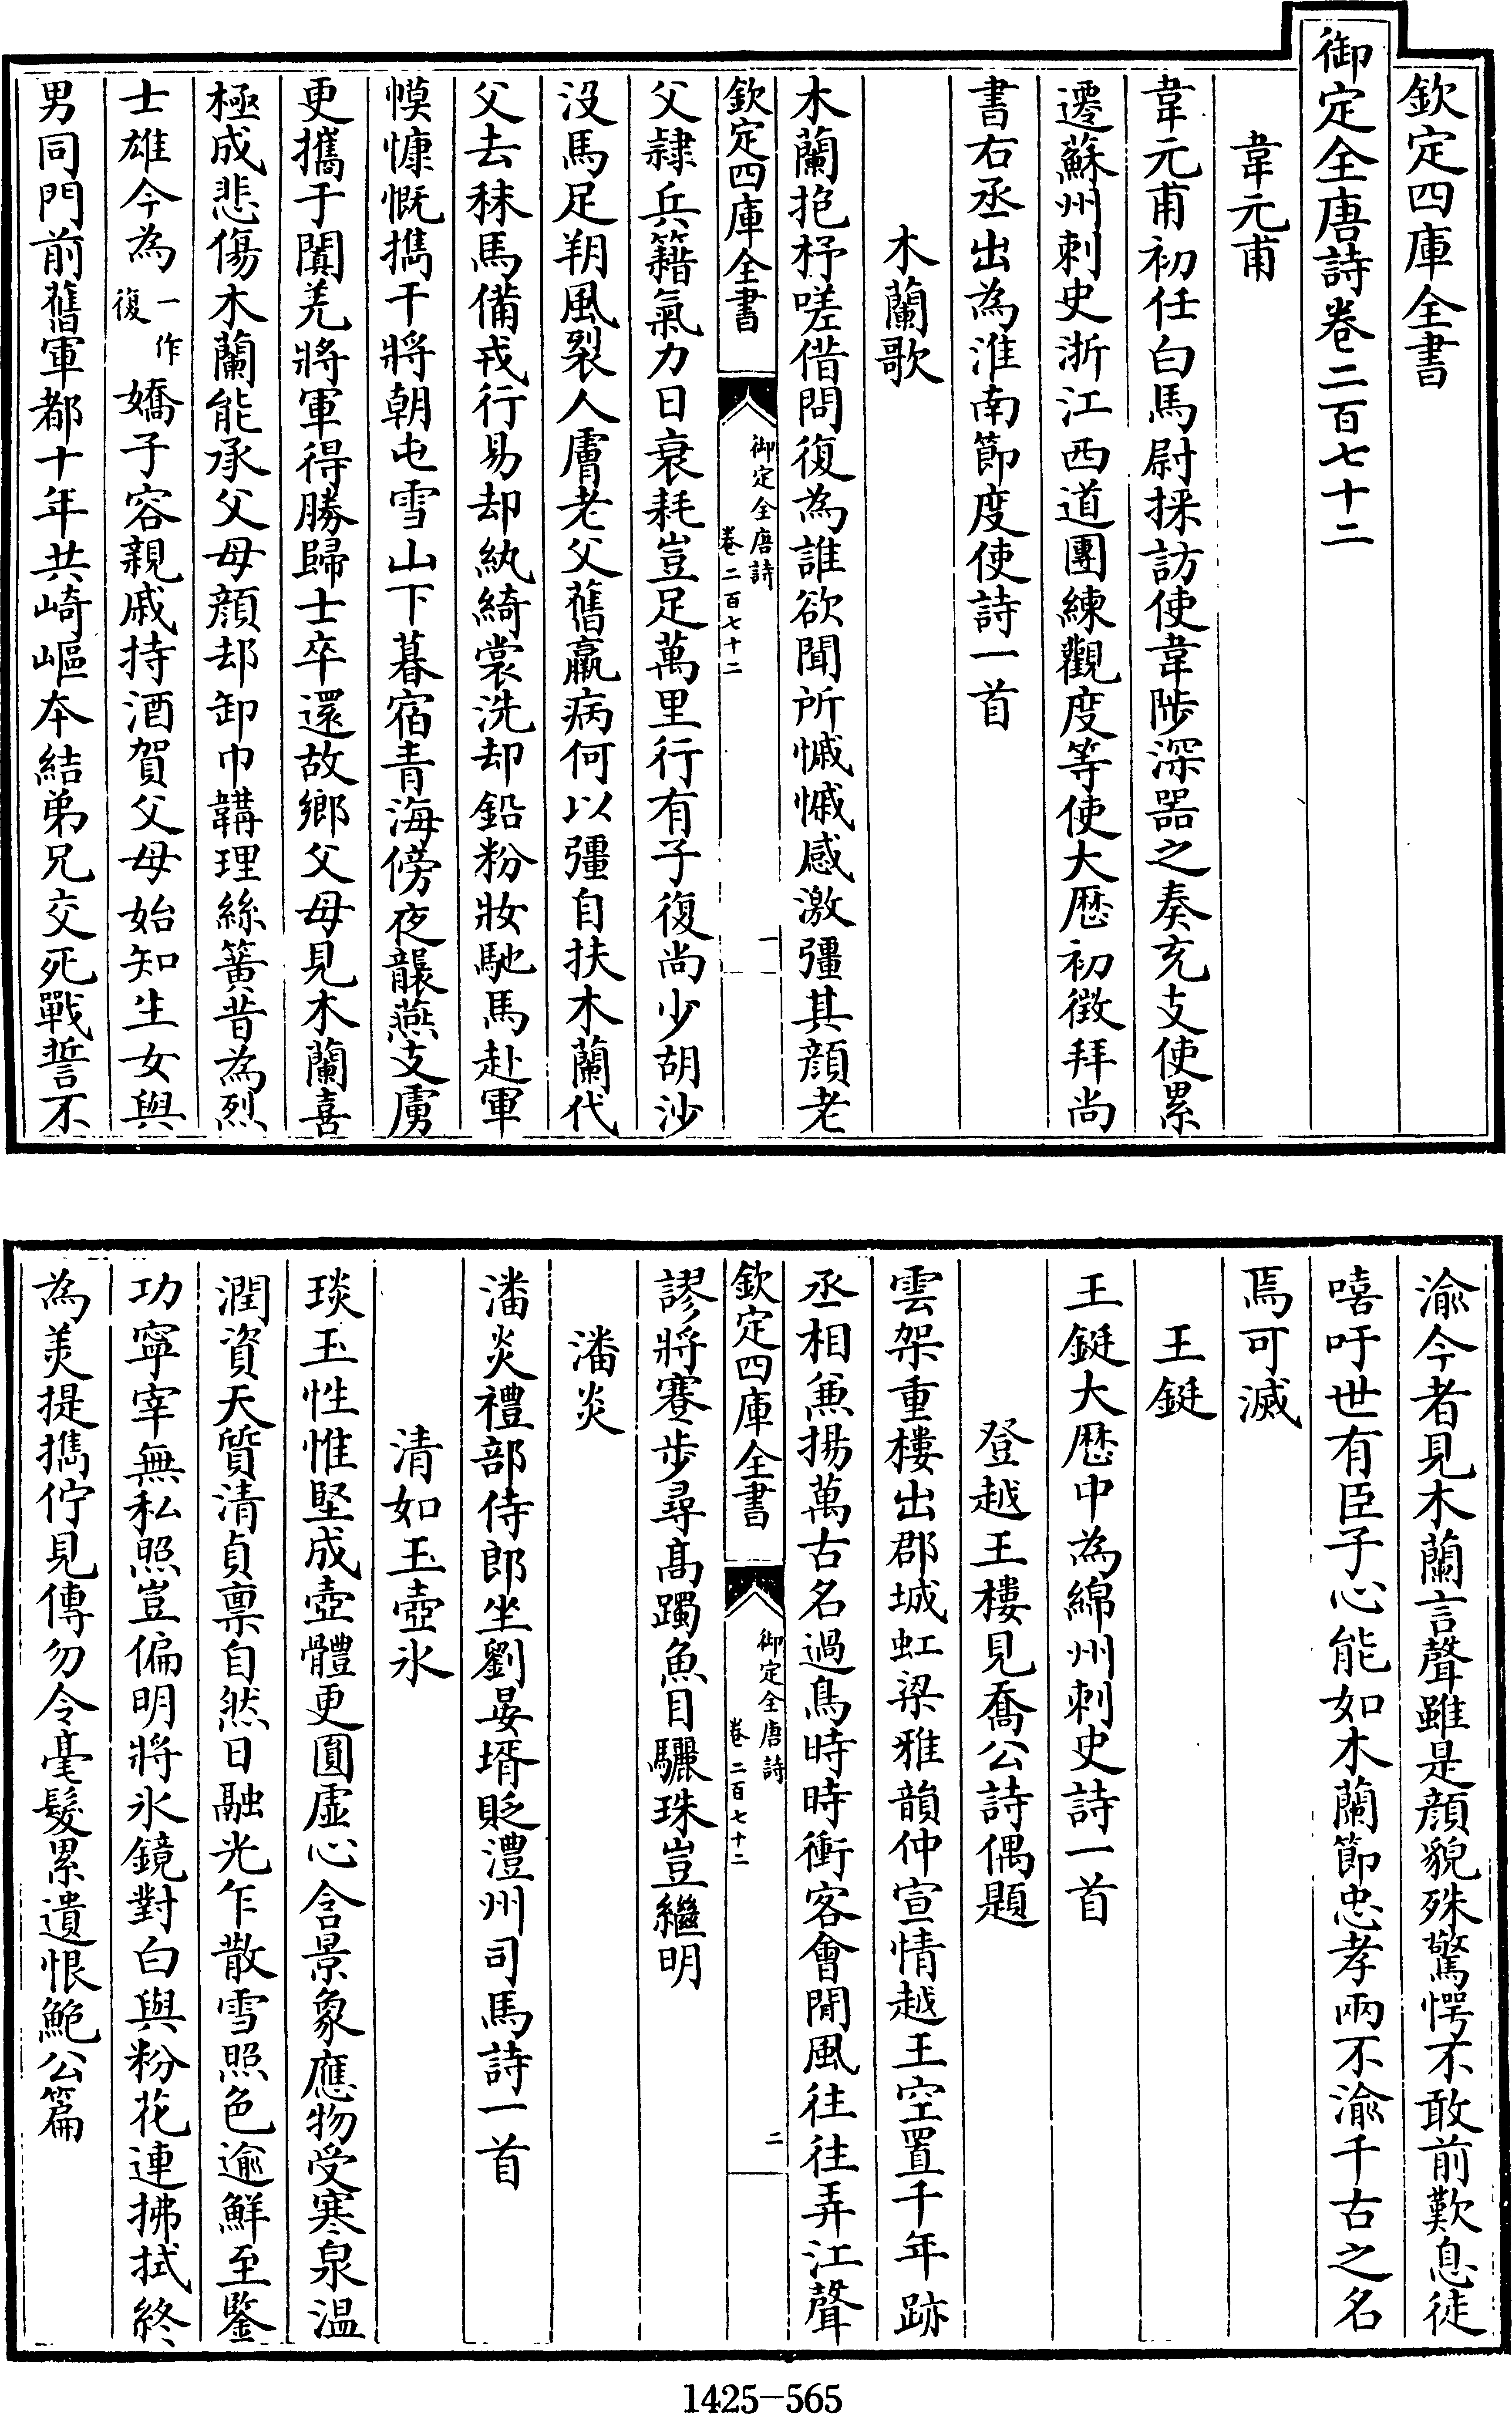 欽定四庫全書
御定全唐詩卷二百七十二
韋元甫
韋元甫初任白馬尉採訪使韋陟深器之奏充支使累
遷蘇州刺史浙江西道團練觀度等使大厯初徵拜尚
書右丞出為淮南節度使詩一首
木蘭歌
木蘭抱杼嗟借問復為誰欲聞所慽慽感激彊其顔老
欽定四庫全書
御定全唐詩
卷二百七十二
一
父隷兵籍氣力日衰耗豈足萬里行有子復尚少胡沙
沒馬足朔風裂人膚老父舊羸病何以彊自扶木蘭代
父去秣馬備戎行易却紈綺裳洗却鉛粉妝馳馬赴軍
幙慷慨擕干將朝屯雪山下暮宿青海傍夜襲燕支虜
更攜于闐羌將軍得勝歸士卒還故鄉父母見木蘭喜
極成悲傷木蘭能承父母顔却卸巾鞲理絲簧昔為烈
士雄今為一作復嬌子容親戚持酒賀父母始知生女與
男同門前舊軍都十年共崎嶇本結弟兄交死戰誓不
渝今者見木蘭言聲雖是顔貌殊驚愕不敢前歎息徒
嘻吁世有臣子心能如木蘭節忠孝兩不渝千古之名
焉可滅
王鋋
王鋋大厯中為綿州刺史詩一首
登越王樓見喬公詩偶題
雲架重樓出郡城虹梁雅韻仲宣情越王空置千年跡
丞相兼揚萬古名過鳥時時衝客會閒風往往弄江聲
欽定四庫全書
御定全唐詩
卷二百七十二
二
謬將蹇步尋高躅魚目驪珠豈繼明
潘炎
潘炎禮部侍郎坐劉晏壻貶澧州司馬詩一首
清如玉壺氷
琰玉性惟堅成壺體更圓虛心含景象應物受寒泉温
潤資天質清貞禀自然日融光乍散雪照色逾鮮至鑒
功寧宰無私照豈偏明將氷鏡對白與粉花連拂拭終
為美提擕佇見傳勿令毫髮累遺恨鮑公篇
1425-565